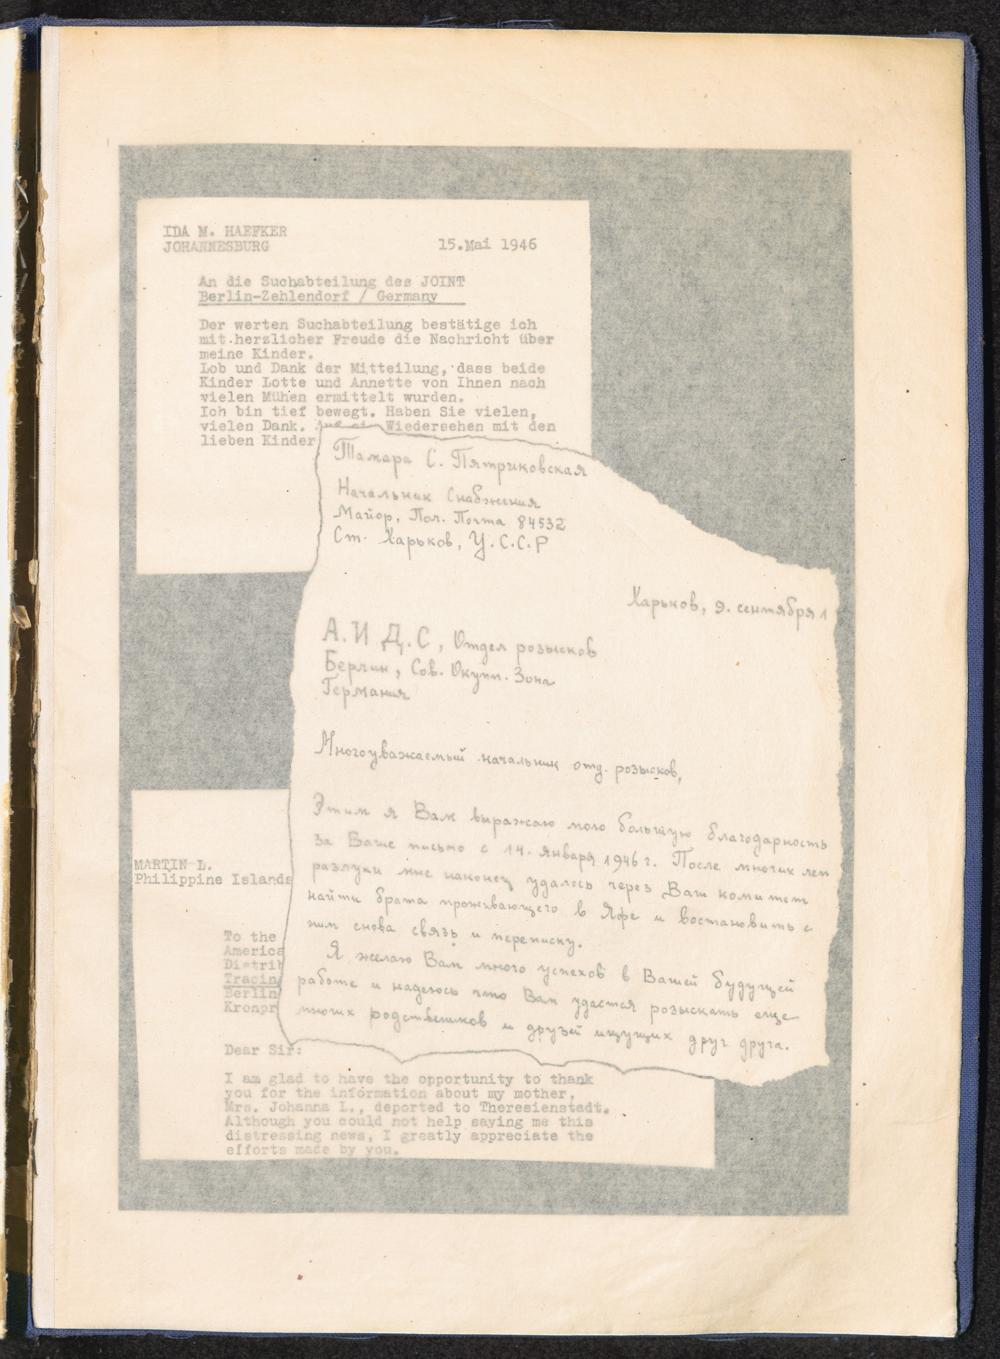 IDA M. HAEFKER
JOHANNESBURG
15.Mai 1946
An die Suchabteilung des JOINT
Berlin-Zehlendorf / Germany
Der werten Suchabteilung bestätige ich
mit herzlicher Freude die Nachricht über
meine Kinder.
Lob und Dank der Mitteilung, dass beide
Kinder Lotte und Annette von Ihnen nach
vielen Mühen ermittelt wurden.
Ich bin tief bewegt. Haben Sie vielen,
vielen Dank. Wiedersehen mit den
lieben Kinder
Тамара С. Пятриковская
Начальник Снабжения
Майор, Пол. Почта 84532
Ст. Харьков, У.С.С.Р
Харьков, 9. сентября 1
А.И Д.С, Отдел розысков
Берлин, Сов. Окупп. Зона
Германия
Многоуважаемый начальник отд. розысков,
Этим я Вам выражаю мою большую благодарность
за Ваше письмо с 14. января 1946 г. После многих лет
разлуки мне наконец удалось через Ваш комитет
найти брата проживающего в Яфе и востановить с
ним снова связь и переписку.
Я желаю Вам много успехов в Вашей будущей
работе и надеюсь что Вам удастся розыскать еще
многих родствеников и друзей ищущих друг друга.
MARTIN L.
Philippine Islands
To the
America
Distrib
Tracin
Berlin
Kronpr
Dear Sir:
I am glad to have the opportunity to thank
you for the information about my mother,
Mrs. Johanna L., deported to Theresienstadt.
Although you could not help saying me this
distressing news, I greatly appreciate the
efforts made by you.